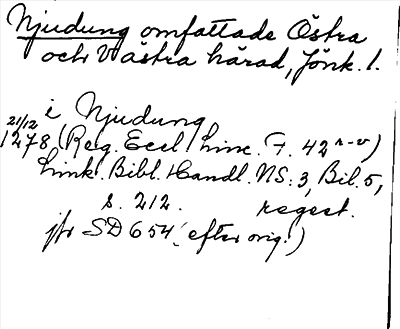 Njudung omfattade Östra
och Västra härad, Jönk. l.
i Njudung
21/12
1278 (Reg. Eccl. Linc. F. 42 r-v)
Link. Bibl. Handl. NS: 3, Bil. 5,
s. 212. regest.
jfr SD 654, efter orig.)